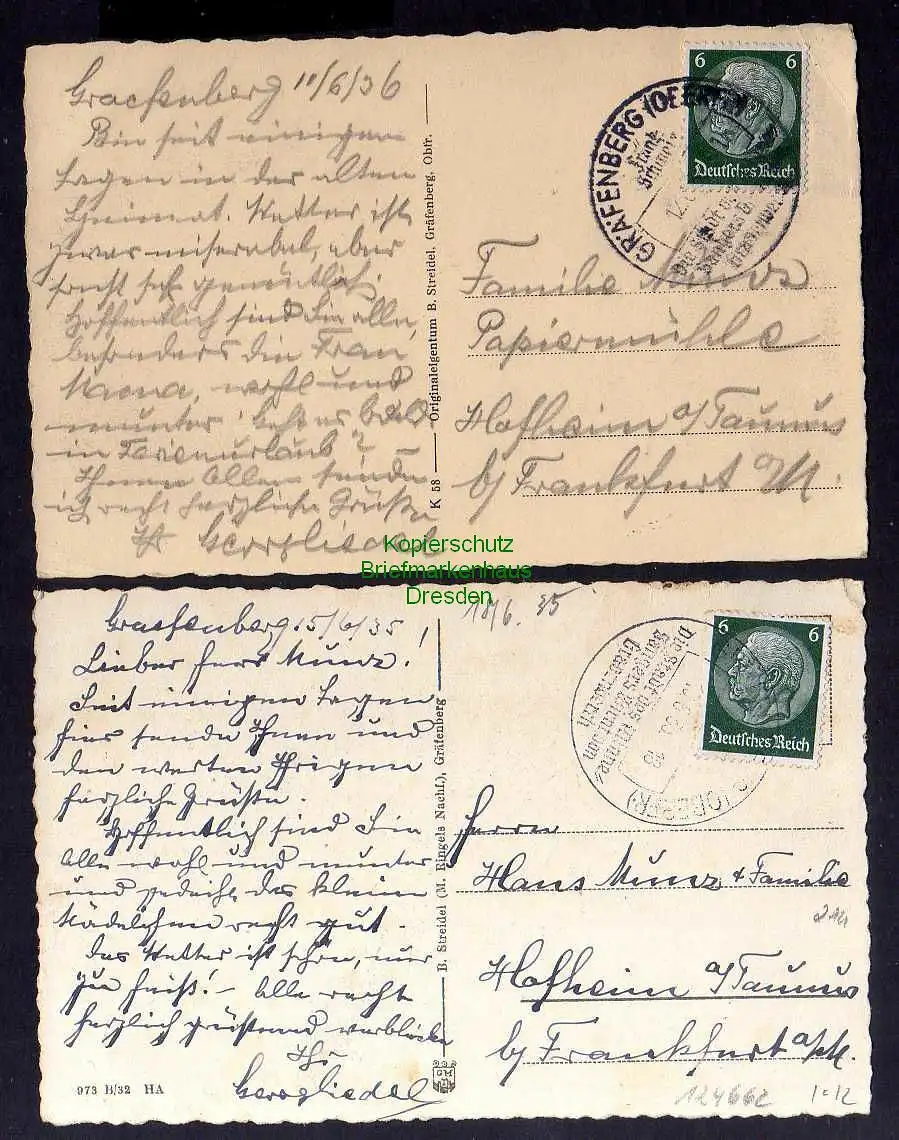 Graefenberg 11/6/36
Bin seit einigen
Tagen in der alten
Heimat. Wetter ist
zwar miserabel, aber
sonst sehr gemütlich.
Hoffentlich sind Sie alle,
besonders die Frau
Mama, wohl und
munter.
in Ferienurlaub?
Ihnen Allen sende
ich recht herzliche Grüße
Ihr Georg Liedel
K 58 — Originaleigentum B. Streidel, Gräfenberg, Obfr.
6 6
Deutsches Reich
GRÄFENBERG (OBERFR)
Familie Munz
Papiermühle
Hofheim a/Taunus
b/ Frankfurt a/M.
Kopierschutz
Briefmarkenhaus
Dresden
Graefenberg 15/6/35!
Lieber Herr Munz!
Seit einigen Tagen
hier sende Ihnen und
den werten Ihrigen
herzliche Grüße.
Hoffentlich sind Sie
Alle wohl und munter
und gedeiht das kleine
Mädelchen recht gut.
Das Wetter ist schön, nur
zu heiß! – Alle recht
herzlich grüßend verbleibe
Ihr
Georg Liedel
973 B/32 HA
B. Streidel (M. Eingels Nachf.), Gräfenberg
18/6. 35
6 6
Deutsches Reich
Herrn
Hans Munz & Familie
Hofheim a/Taunus
b/ Frankfurt a/M.
12466c